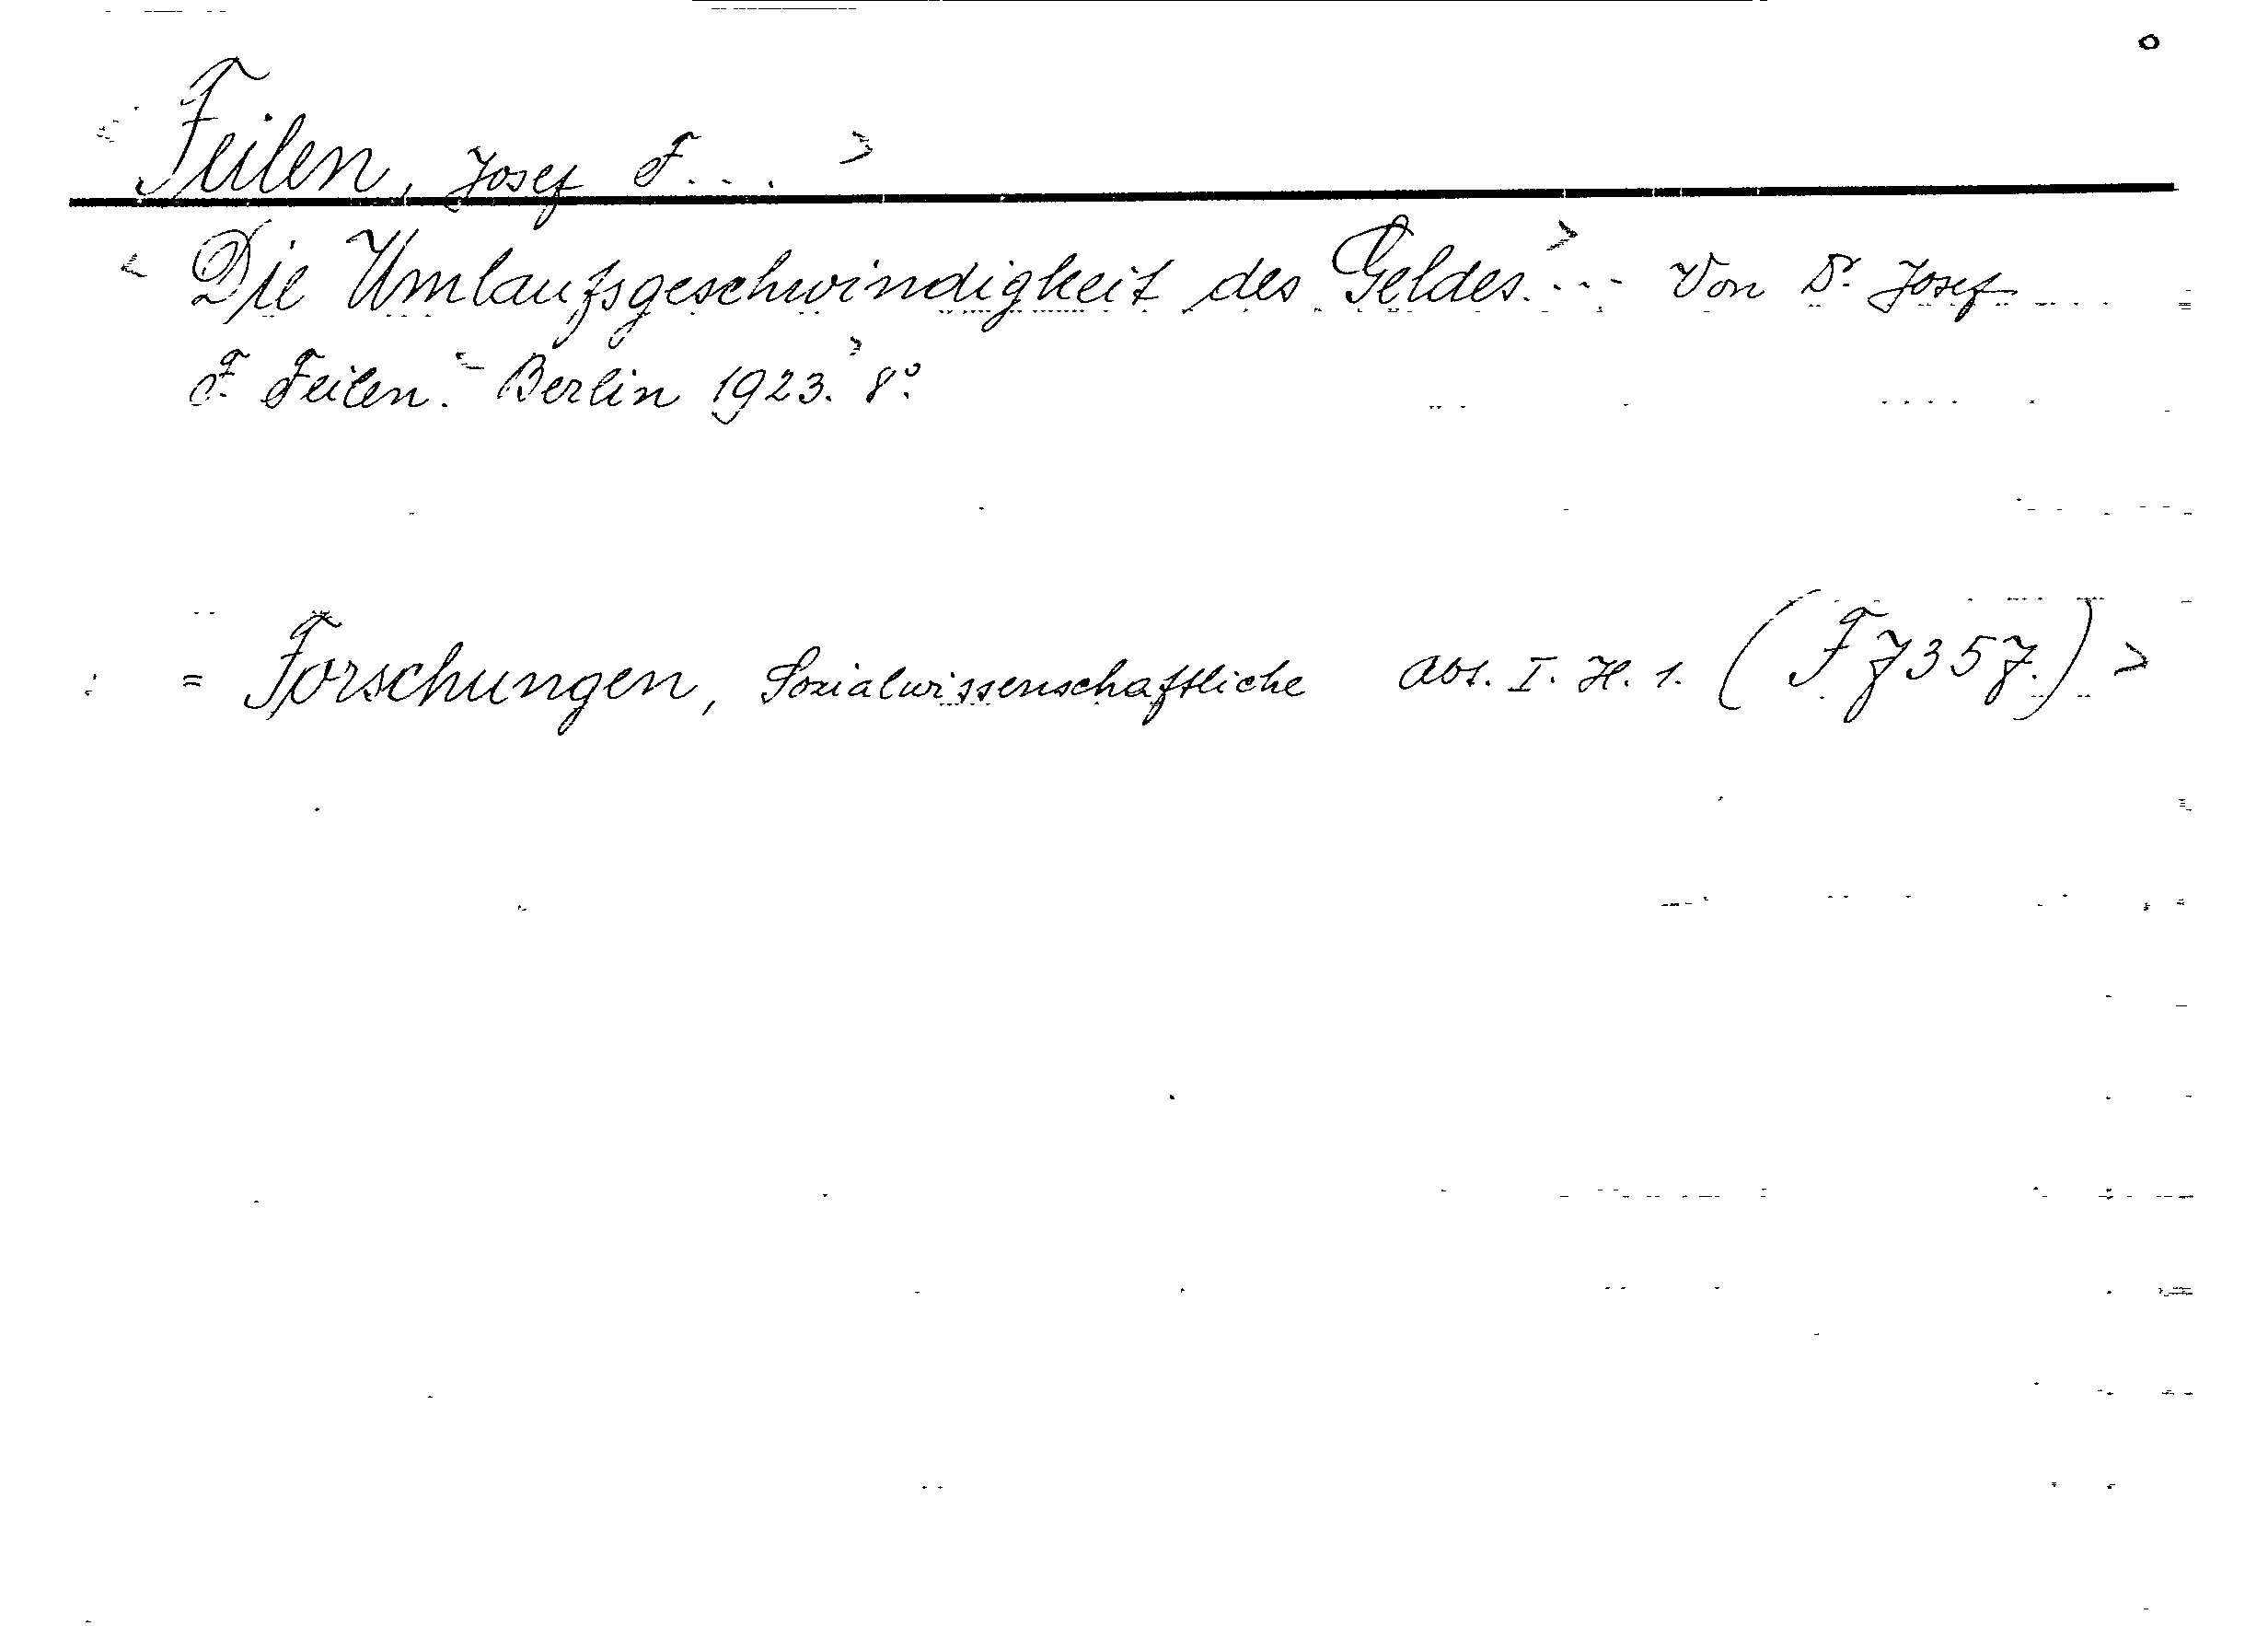 < Feilen, Josef F... >
< Die Umlaufsgeschwindigkeit des Geldes.> ... Von Dr. Josef
F. Feilen. < Berlin 1923. > 8º.
= Forschungen, Sozialwissenschaftliche Abt. I. H. 1. (F 7357.) >